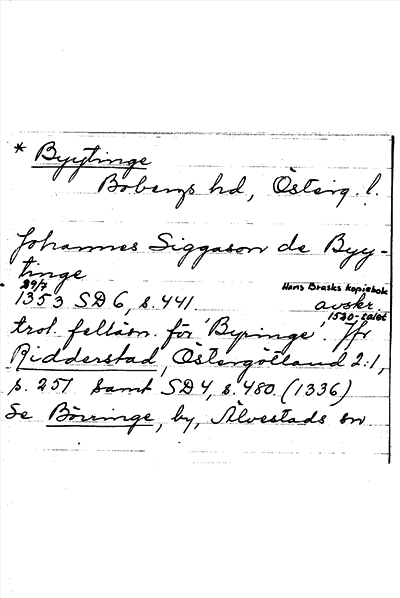 * Byytinge
Bobergs hd, Österg. l.
Johannes Siggason de Byy-
tinge
29/7
1353 SD 6, s. 441. avskr.
Hans Brasks kopiebok
1520-talet
trol. felläsn. för 'Byringe'. Jfr
Ridderstad, Östergötland 2:1,
s. 251 samt SD 4, s. 480. (1336)
Se Börringe, by, Älvestads sn